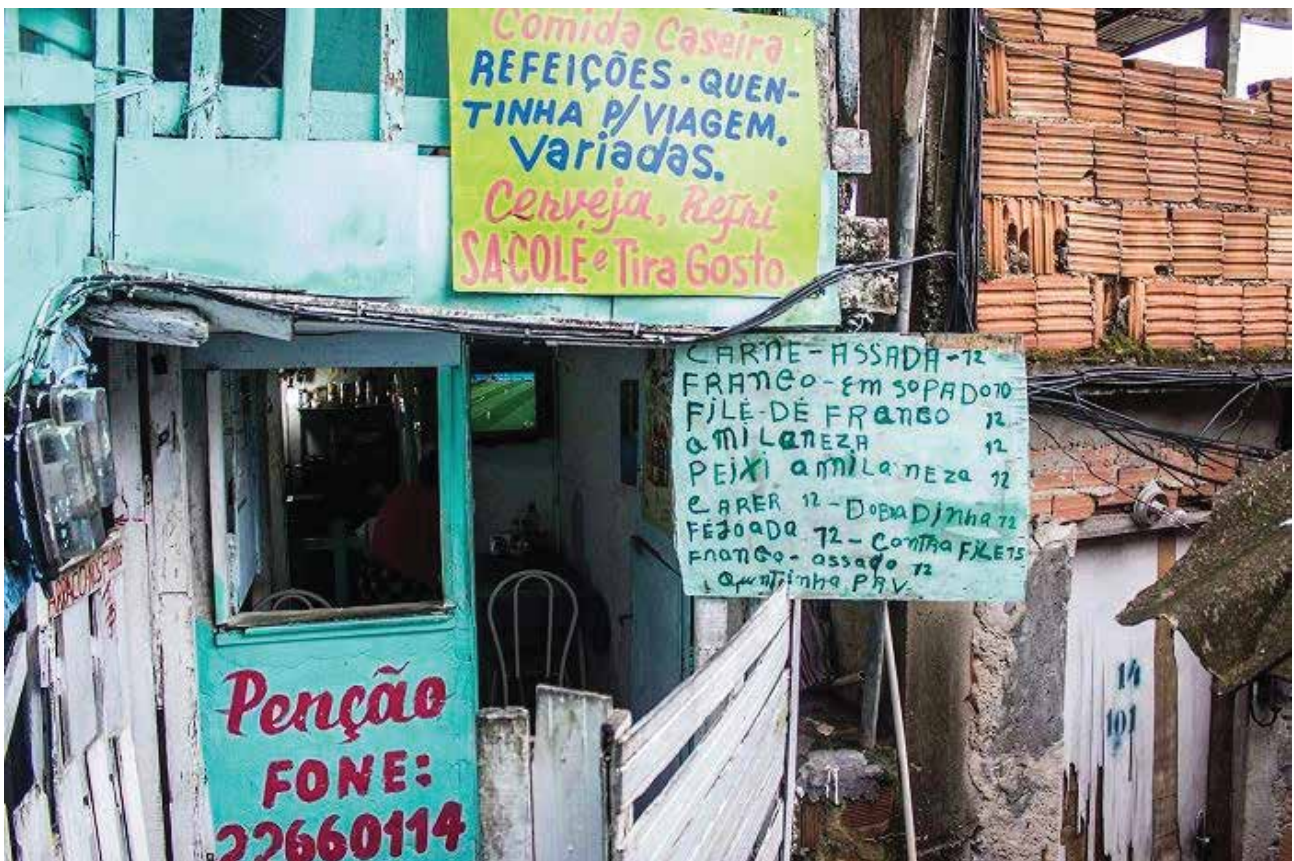 Comida Caseira
REFEIÇÕES · QUEN-
TINHA P/VIAGEM.
Variadas.
Cerveja, Refri
SACOLÉ e Tira Gosto.
CARNE-ASSADA-12
FRANGO-EmSOPADO10
FiLÉ-DE FRANGO 12
amiLANEZA 12
PEiXi amiLaNEZa 12
CARER 12-DOBRADinha 12
FEJOADA 12-CONTRA FiLE 15
FRANGO-assado 12
QuNTinha PRV
Penção
FONE:
22660114
14
101